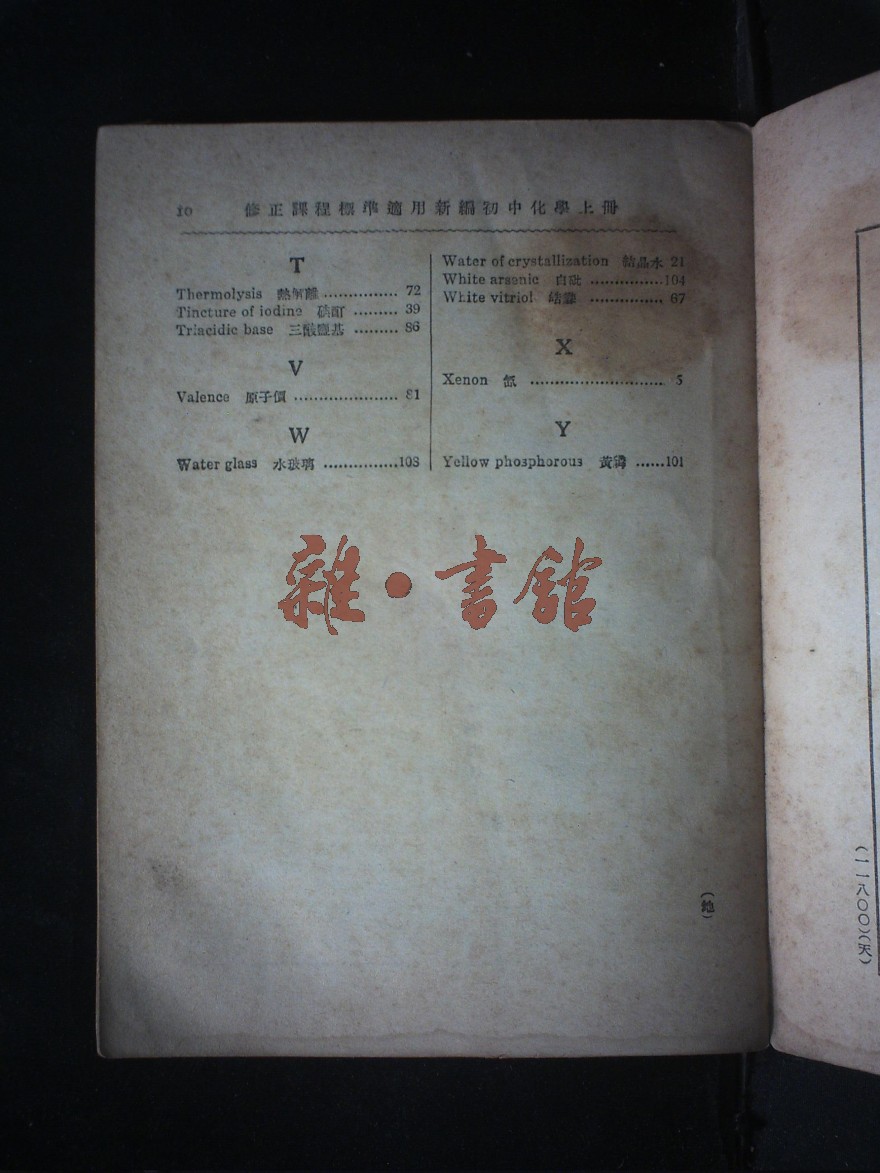 10 修正課程標準適用新編初中化學上冊
T
Thermolysis 熱解離 ............... 72
Tincture of iodine 碘酊 ......... 39
Triacidic base 三酸鹽基 ......... 86
V
Valence 原子價 ..................... 81
W
Water glass 水玻璃 ...............108
Water of crystallization 結晶水 21
White arsenic 白砒 ...............104
White vitriol 皓礬 ............... 67
X
Xenon 氙 ........................... 5
Y
Yellow phosphorous 黃磷 ......101
雜·書館
(地)
(一一八〇〇)(天)